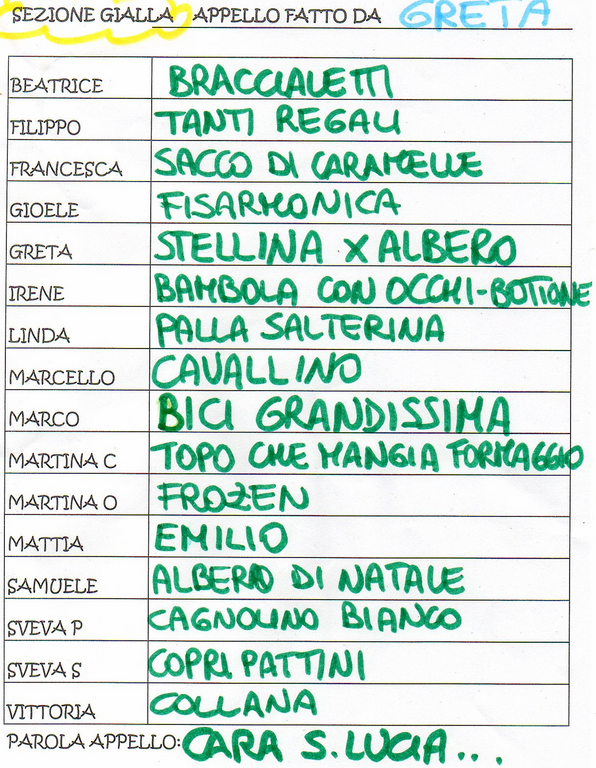 SEZIONE GIALLA APPELLO FATTO DA GRETA
BEATRICE BRACCIALETTI
FILIPPO TANTI REGALI
FRANCESCA SACCO DI CARAMELLE
GIOELE FISARMONICA
GRETA STELLINA X ALBERO
IRENE BAMBOLA CON OCCHI-BOTTONE
LINDA PALLA SALTERINA
MARCELLO CAVALLINO
MARCO BICI GRANDISSIMA
MARTINA C TOPO CHE MANGIA FORMAGGIO
MARTINA O FROZEN
MATTIA EMILIO
SAMUELE ALBERO DI NATALE
SVEVA P CAGNOLINO BIANCO
SVEVA S COPRI PATTINI
VITTORIA COLLANA
PAROLA APPELLO: CARA S. LUCIA...